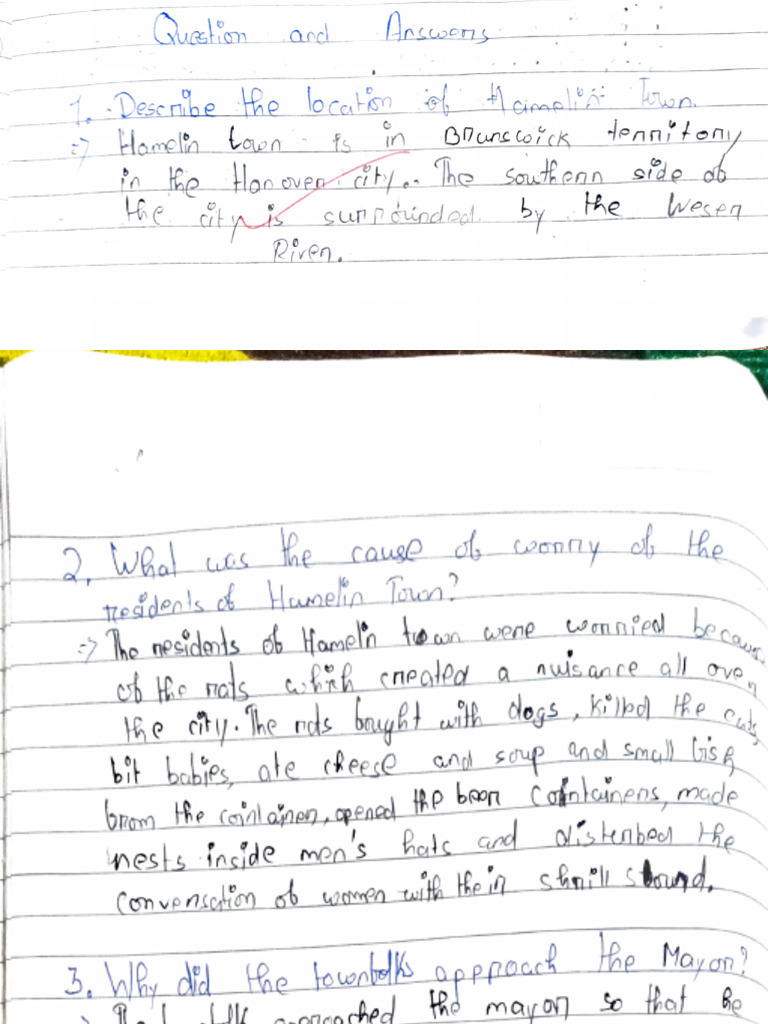 Question and Answers
1. Describe the location of Hamelin Town.
=> Hamelin town is in Brunswick territory
in the Hanover city. The southern side of
the city is surrounded by the Weser
River.
2. What was the cause of worry of the
residents of Hamelin Town?
=> The residents of Hamelin town were worried because
of the rats which created a nuisance all over
the city. The rats fought with dogs, killed the cats,
bit babies, ate cheese and soup and small fish
from the container, opened the beer containers, made
nests inside men's hats and disterbed the
conversation of women with their shrill sound.
3. Why did the townfolks approach the Mayor?
approached the mayor so that he